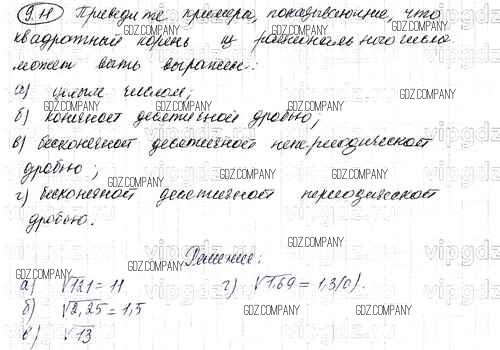 9.11 Приведите примеры, показывающие, что
квадратный корень из рационального числа
может быть выражен:
а) целым числом;
б) конечной десятичной дробью;
в) бесконечной десятичной непериодической
дробью;
г) бесконечной десятичной периодической
дробью.
Решение:
а) √121 = 11
г) √1,69 = 1,3(0).
б) √2,25 = 1,5
в) √13
GDZ.COMPANY
vipgdz.ru